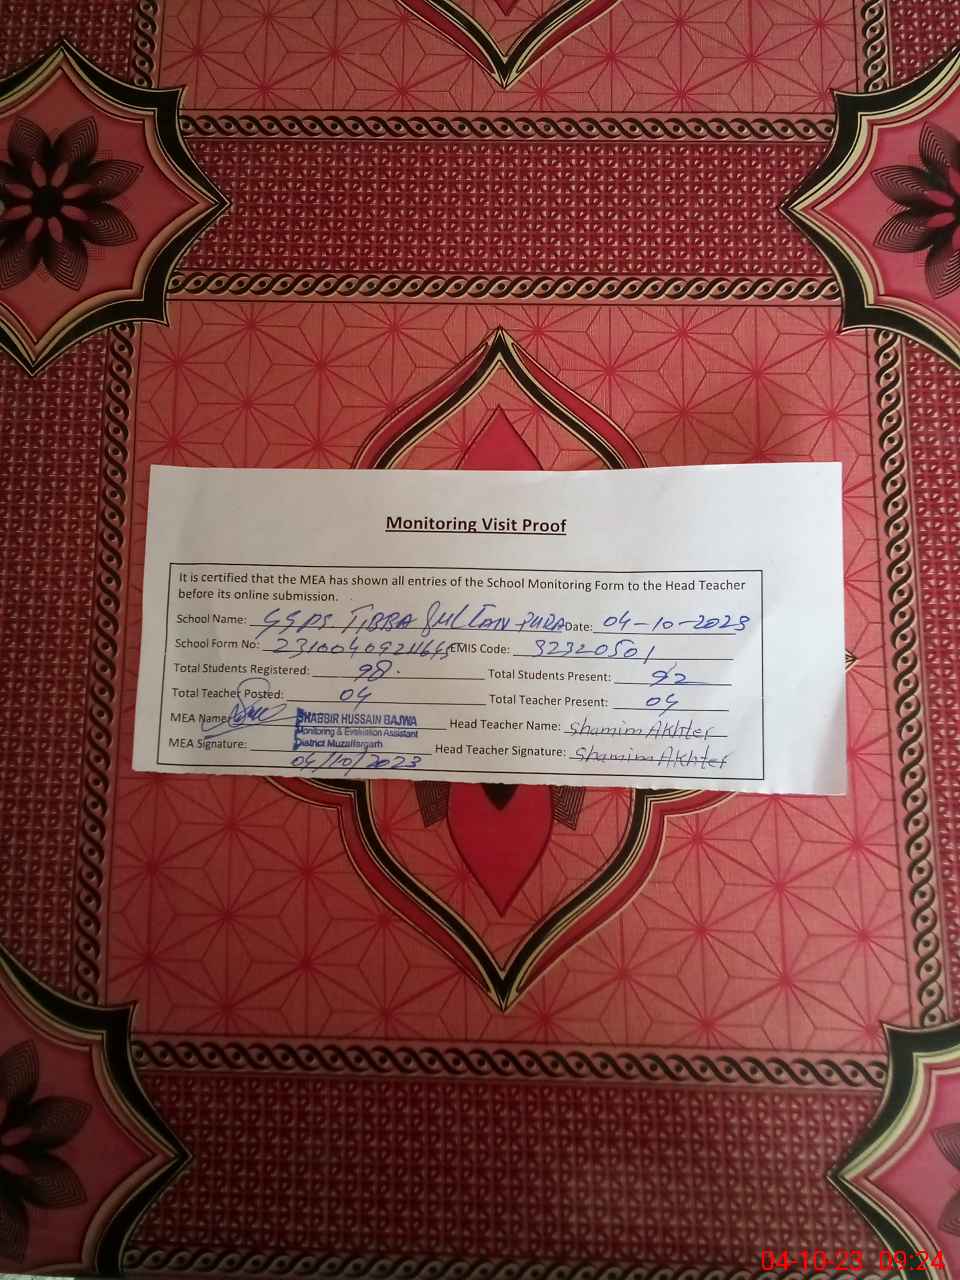 Monitoring Visit Proof
It is certified that the MEA has shown all entries of the School Monitoring Form to the Head Teacher
before its online submission.
School Name: GGPS TIBBA SULTAN PURA Date: 04-10-2023
School Form No: EMIS Code: 32320501
Total Students Registered: 98. Total Students Present: 92
Total Teacher Posted: 04 Total Teacher Present: 04
MEA Name: SHABBIR HUSSAIN BAJWA Head Teacher Name: Shamim Akhter
Monitoring & Evaluation Assistant
District Muzaffargarh
MEA Signature: Head Teacher Signature: Shamim Akhter
04/10/2023
04-10-23 09:24